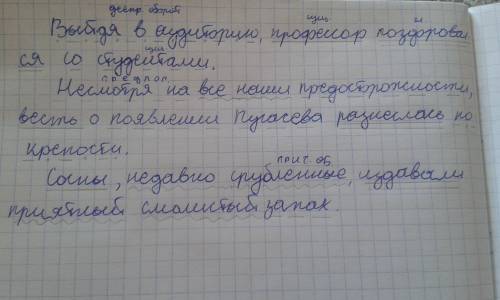 деепр. оборот
сущ. н
Выйдя в аудиторию, профессор поздоровал
ся со студентами.
сущ.
предлог
Несмотря на все наши предосторожности,
весть о появлении Пугачева разнеслась по
крепости.
прич. об
Сосны, недавно срубленные, издавали
приятный смолистый запах.